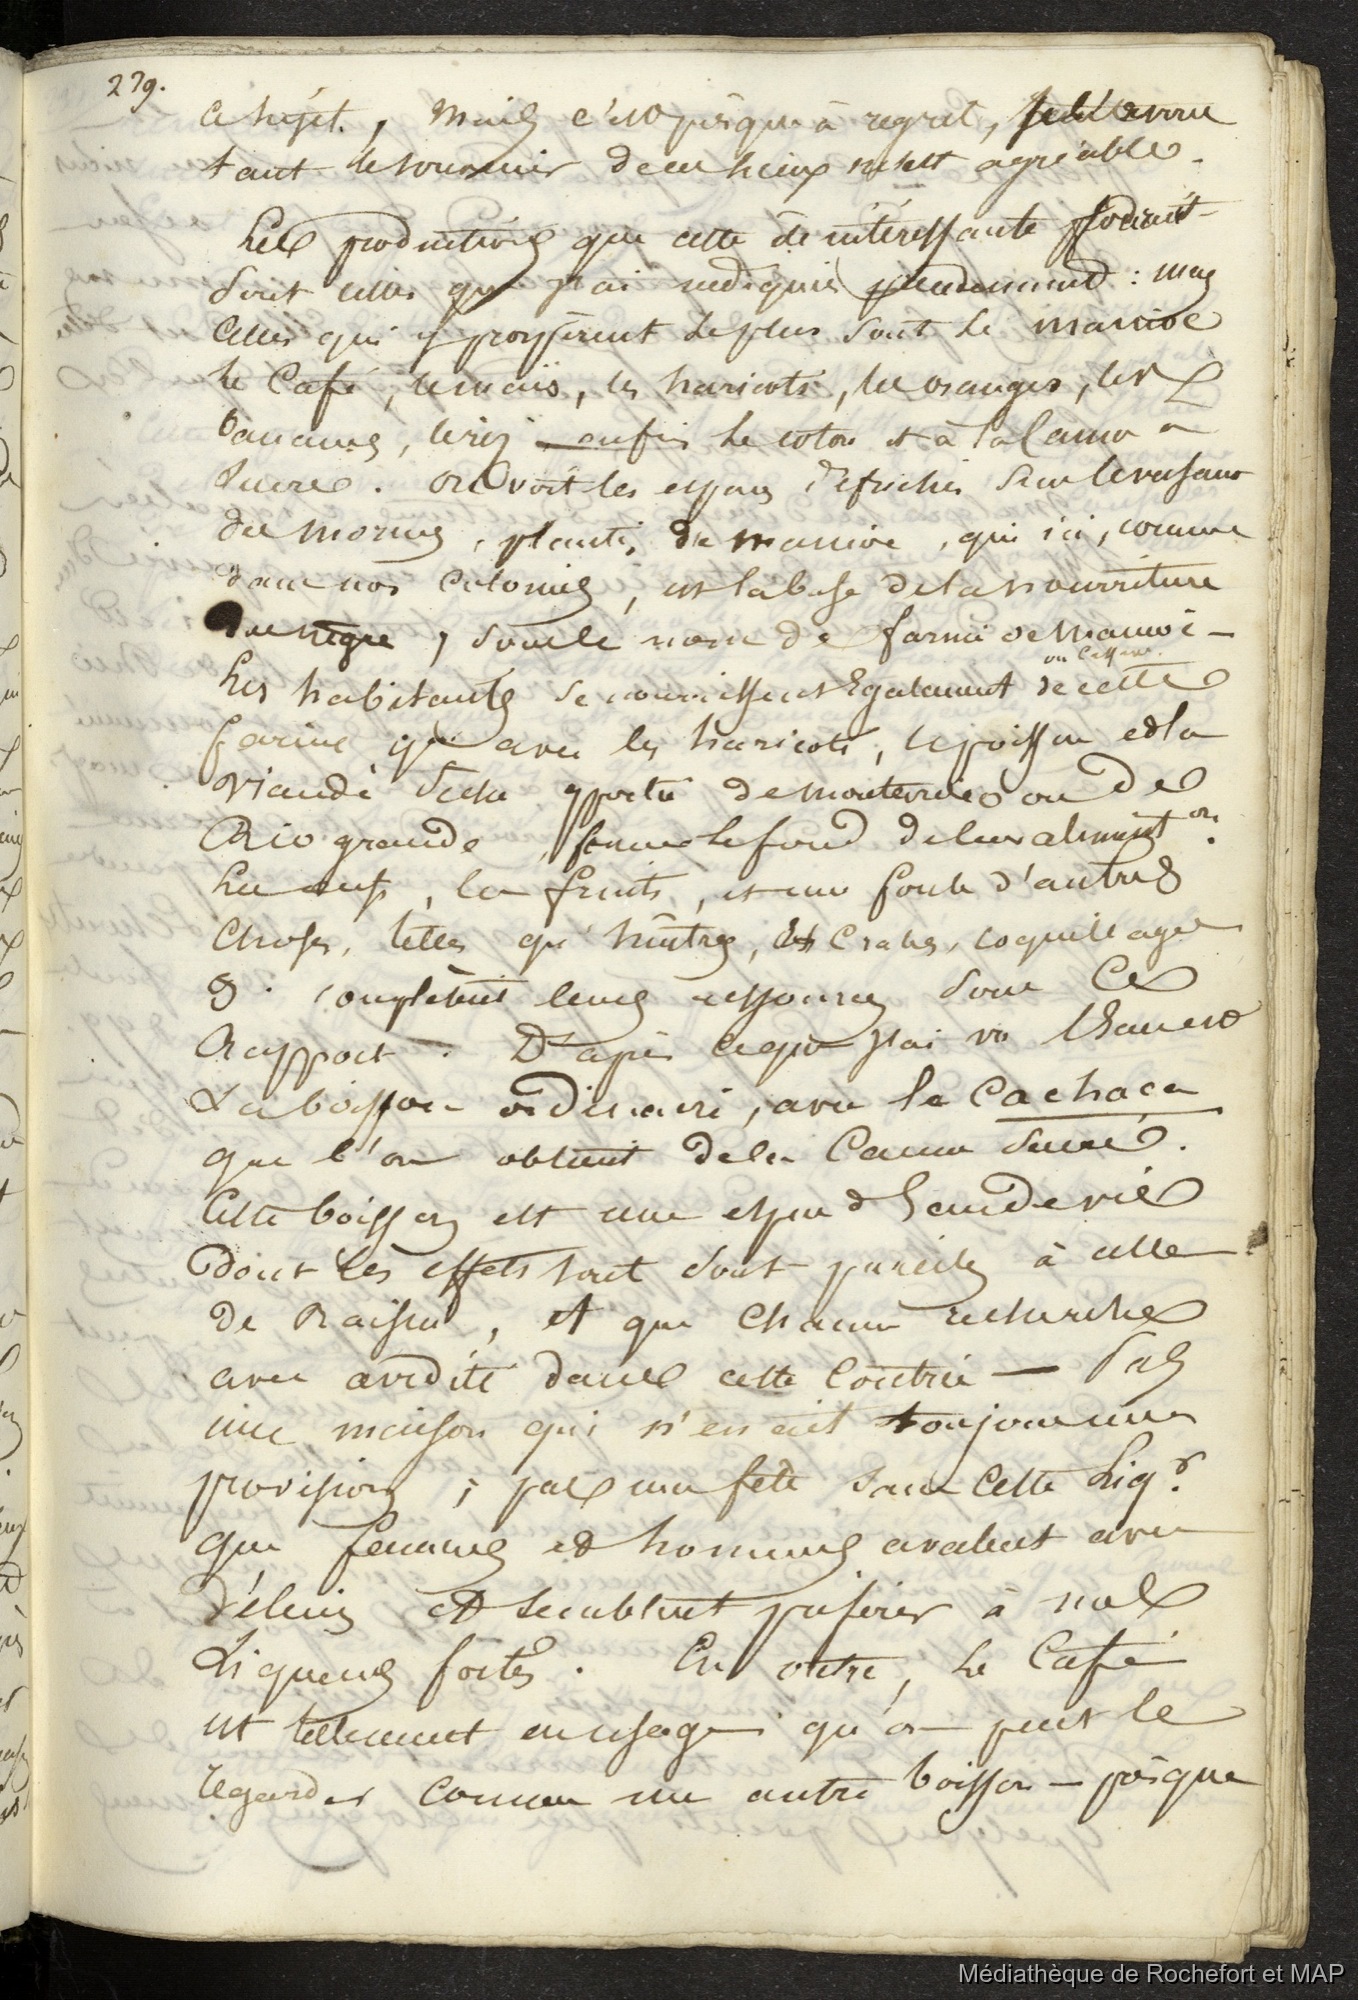 279.
ce sujet, mais c'est presque à regret, je l'avoue
tant le souvenir de ces lieux m'est agréable.
Les productions que cette île intéressante produit
sont celles que j'ai indiquées précédemment : mais
celles qui y prospèrent le plus sont le manioc
le Café, le maïs, les haricots, les oranges, les
bananes, le riz enfin le coton et la Canne à
Sucre. On voit les espaces défrichés sur le versant
des mornes, plantés de manioc, qui ici, comme
dans nos Colonies, est la base de la nourriture
du nègre, sous le nom de farine de Manioc -
ou Cassave.
Les habitants se nourrissent également de cette
farine qui avec les haricots, le poisson et la
Viande sèche apportée de Montevideo ou de
Rio grande, forme le fond de leur aliment.on
Les œufs, les fruits, et une foule d'autres
Choses, telles qu'huîtres, Crabes, coquillages
&. complètent leurs ressources sous Ce
Rapport. D'après ce que j'ai vu l'eau est
La boisson ordinaire, avec la Cachaca
que l'on obtient de la Canne Sucre.
Cette boisson est une espèce d'eau de vie
Dont les effets sont pareils à celle
de Raisin, et que chacun recherche
avec avidité dans cette Contrée — Pas
une maison qui n'en ait toujours une
provision ; pas une fête sans Cette Liq.r
que femmes et hommes avalent avec
délices et semblent préférer à nos
Liqueurs fortes. En outre, le Café
est tellement en usage qu'on peut le
regarder comme une autre boisson — presque